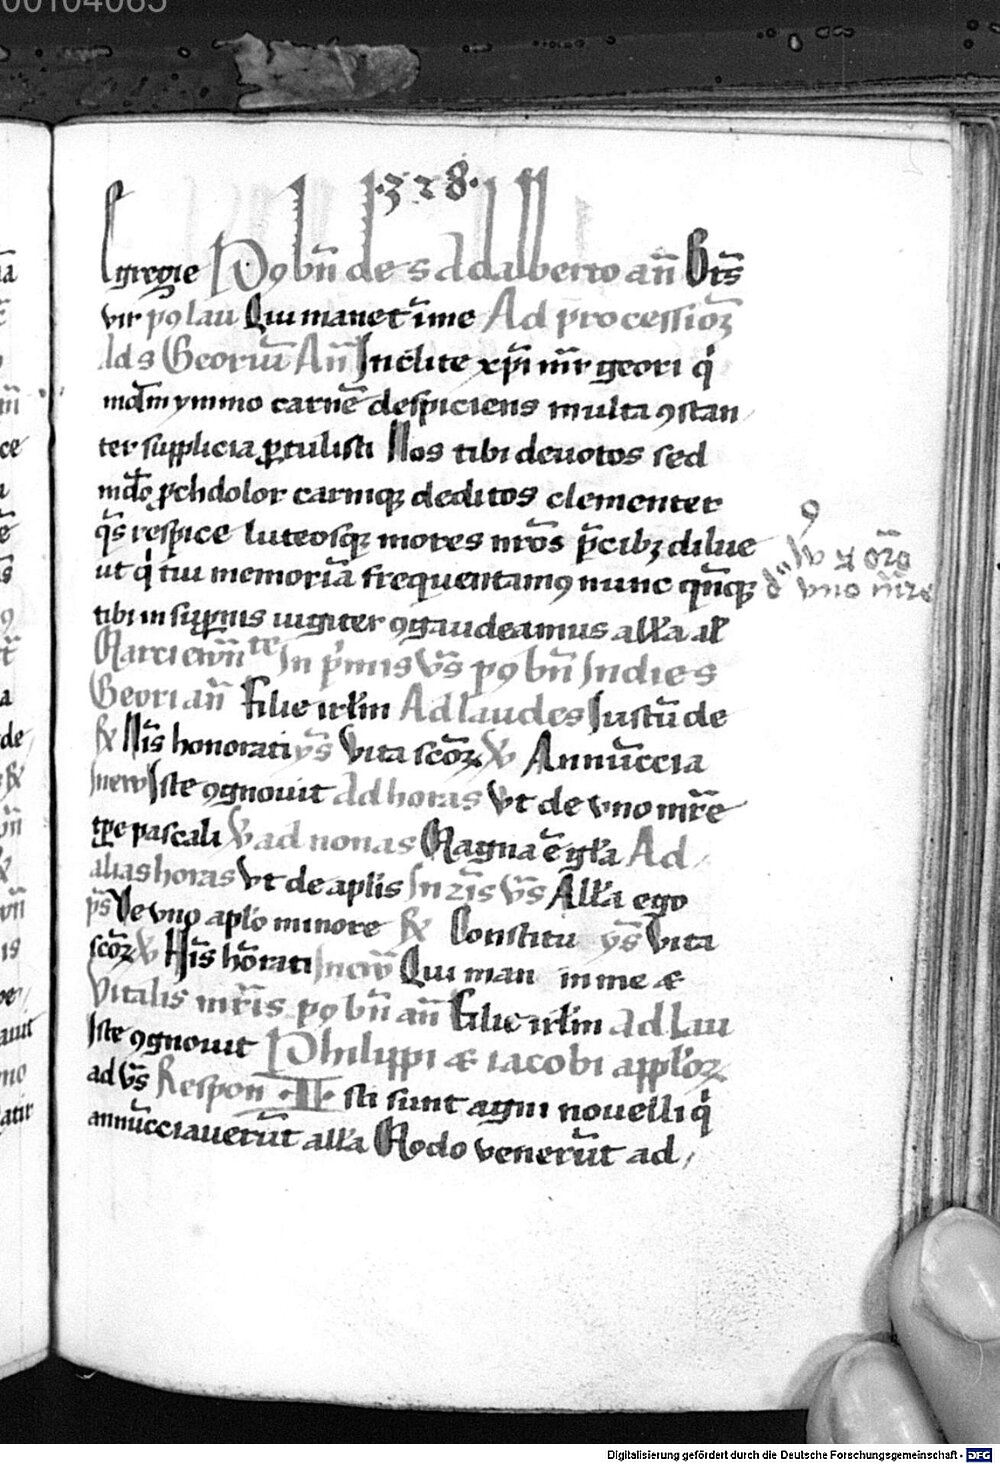 00104065
·328·
Egregie Po bn̄ de s adalberto an̄ Vr̄s
vir po lau Qui manet ī me Ad processioꝫ
Ad s Georiū An̄ Inclite xp̄i mr̄ geori q
ymmo carnē despiciens multa ꝯstan
ter supplicia ꝑtulisti Nos tibi deuotos sed
dolor carniqꝫ deditos clementer
qs̄ respice luteosqꝫ mores nr̄os p̄cibꝫ dilue
ut q tui memoriā frequentamꝯ nunc
tibi in suꝑnis iugiter ꝯgaudeamus alła
In p̄mis vs̄ po bn̄ In die s
Geori an̄ Filie irłm Ad laudes Iustū de
Hīs honorati ys̄ Vita scōꝝ W Annūccia
Iste ꝯgnouit Ad horas Vt de vno mr̄e
tꝑe pascali W ad nonas Magna ē gła Ad
alias horas Vt de apłis In vs̄ Alła ego
ps̄ De vno apło minore Constitu ys̄ Vita
scōꝝ W Hīs hōrati Qui man in me et
Vitalis mr̄is po bn̄ an̄ Filie irłm ad Lau
Iste ꝯgnouit Philippi et iacobi appłoꝝ
ad vs̄ Respon ·II· sti sunt agni nouelli q
annūcciauerūt alła Modo venerūt ad
W ꝯ
vno mr̄e
Digitalisierung gefördert durch die Deutsche Forschungsgemeinschaft - DFG